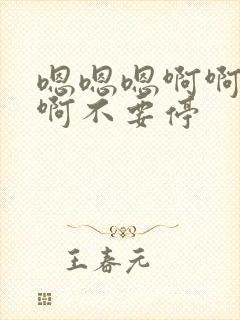 嗯嗯嗯啊啊
啊不要停
王春元